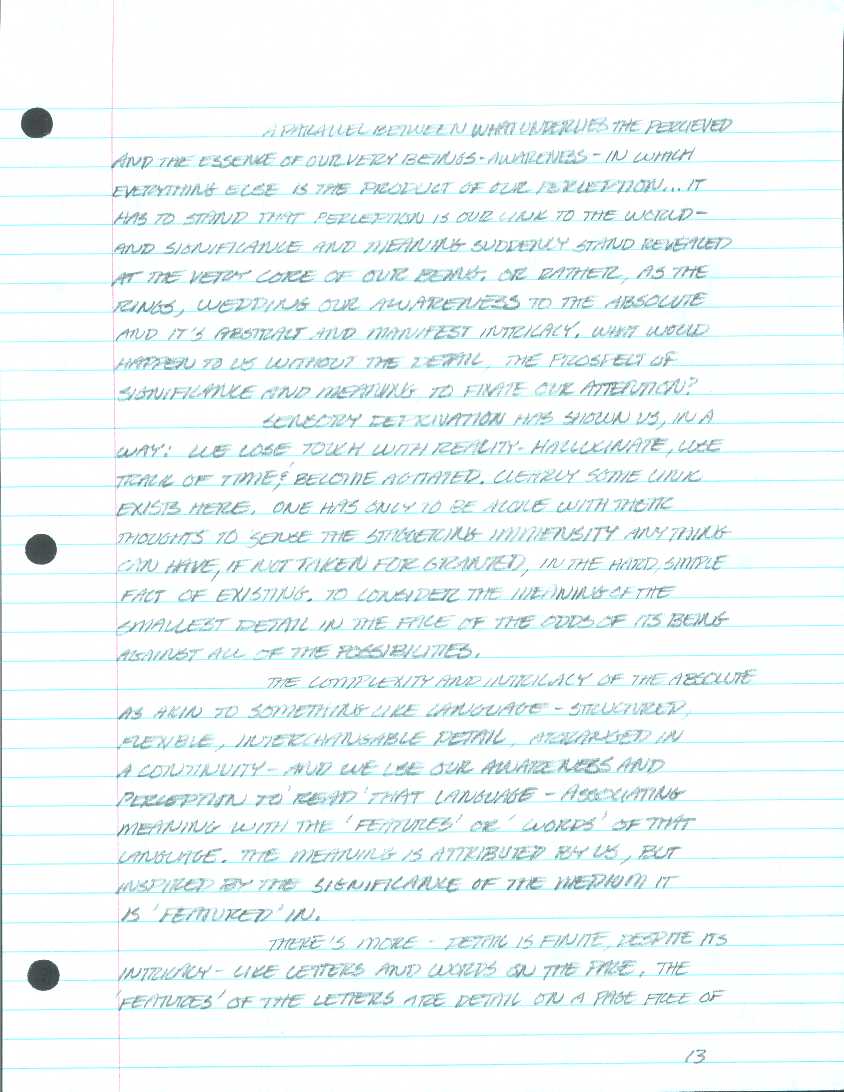 A PARALLEL BETWEEN WHAT UNDERLIES THE PERCIEVED
AND THE ESSENCE OF OUR VERY BEINGS - AWARENESS - IN WHICH
EVERYTHING ELSE IS THE PRODUCT OF OUR PERCEPTION... IT
HAS TO STAND THAT PERCEPTION IS OUR LINK TO THE WORLD -
AND SIGNIFICANCE AND MEANING SUDDENLY STAND REVEALED
AT THE VERY CORE OF OUR BEING. OR RATHER, AS THE
RINGS, WEDDING OUR AWARENESS TO THE ABSOLUTE
AND IT'S ABSTRACT AND MANIFEST INTRICACY. WHAT WOULD
HAPPEN TO US WITHOUT THE DETAIL, THE PROSPECT OF
SIGNIFICANCE AND MEANING TO FIXATE OUR ATTENTION?
SENSORY DEPRIVATION HAS SHOWN US, IN A
WAY: WE LOSE TOUCH WITH REALITY - HALLUCINATE, LOSE
TRACK OF TIME & BECOME AGITATED. CLEARLY SOME LINK
EXISTS HERE. ONE HAS ONLY TO BE ALONE WITH THEIR
THOUGHTS TO SENSE THE STAGGERING IMMENSITY ANYTHING
CAN HAVE, IF NOT TAKEN FOR GRANTED, IN THE HARD, SIMPLE
FACT OF EXISTING. TO CONSIDER THE MEANING OF THE
SMALLEST DETAIL IN THE FACE OF THE ODDS OF ITS BEING
AGAINST ALL OF THE POSSIBILITIES.
THE COMPLEXITY AND INTRICACY OF THE ABSOLUTE
AS AKIN TO SOMETHING LIKE LANGUAGE - STRUCTURED,
FLEXIBLE, INTERCHANGABLE DETAIL, ARRANGED IN
A CONTINUITY - AND WE USE OUR AWARENESS AND
PERCEPTION TO 'READ' THAT LANGUAGE - ASSOCIATING
MEANING WITH THE 'FEATURES' OR 'WORDS' OF THAT
LANGUAGE. THE MEANING IS ATTRIBUTED BY US, BUT
INSPIRED BY THE SIGNIFICANCE OF THE MEDIUM IT
IS 'FEATURED' IN.
THERE'S MORE - DETAIL IS FINITE, DESPITE ITS
INTRICACY - LIKE LETTERS AND WORDS ON THE PAGE. THE
'FEATURES' OF THE LETTERS ARE DETAIL ON A PAGE FREE OF
13